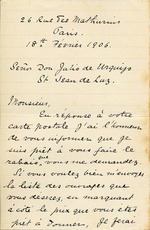 26 Rue des Mathurins
Paris.
18th Février 1906.
Señor Don Julio de Urquijo
St Jean de Luz.
Monsieur,
En réponse à votre
carte postale J'ai l'honneur
de vous informer que je
suis prêt à vous faire le
rabais que vous me demandez.
Si vous voulez bien m'envoyer
la liste des ouvrages que
vous desirez, en marquant
à côté le prix que vous êtes
prêt à donner, Je ferai